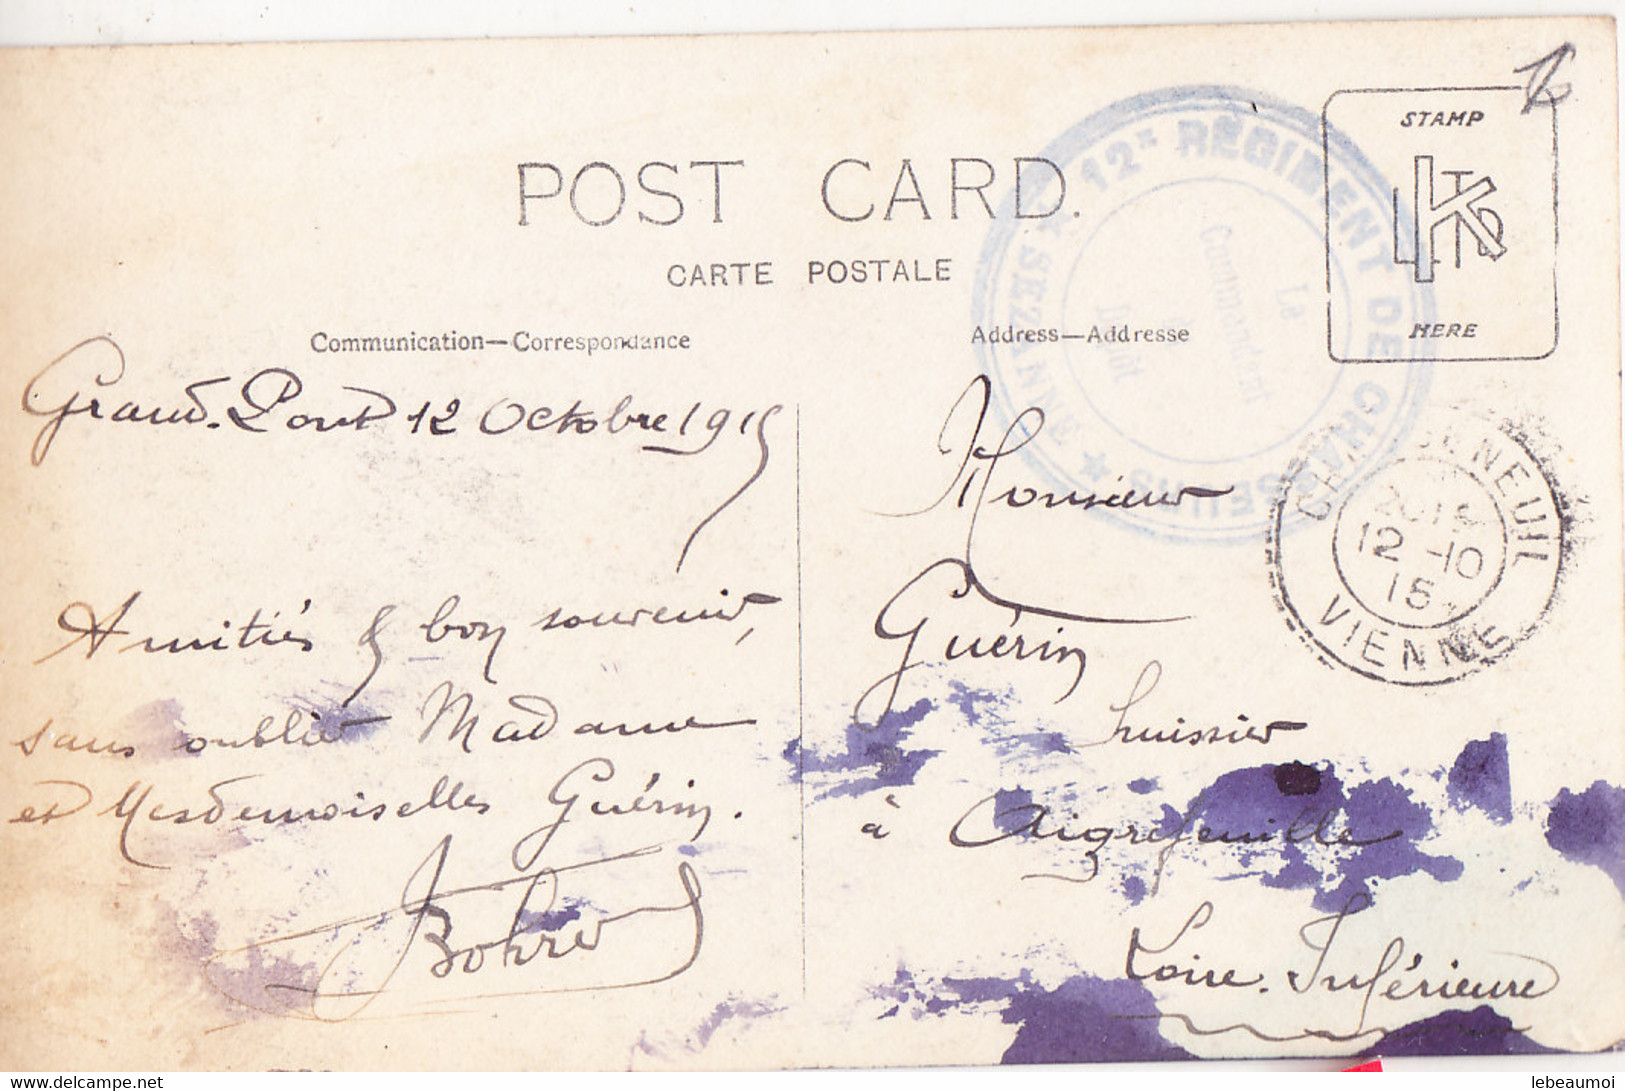 POST CARD.
CARTE POSTALE
Communication—Correspondance
Address—Addresse
STAMP
HERE
12e RÉGIMENT DE CHASSEURS
★ SEZANNE ★
Le
Commandant
du
Dépôt
Grand-Pont 12 Octobre 1915
Amitiés & bon souvenir,
sans oublier Madame
et Mesdemoiselles Guérin.
Monsieur
Guérin
huissier
à Aigrefeuille
Loire-Inférieure
NEUIL
12-10
15
VIENNE
www.delcampe.net
lebeaumoi